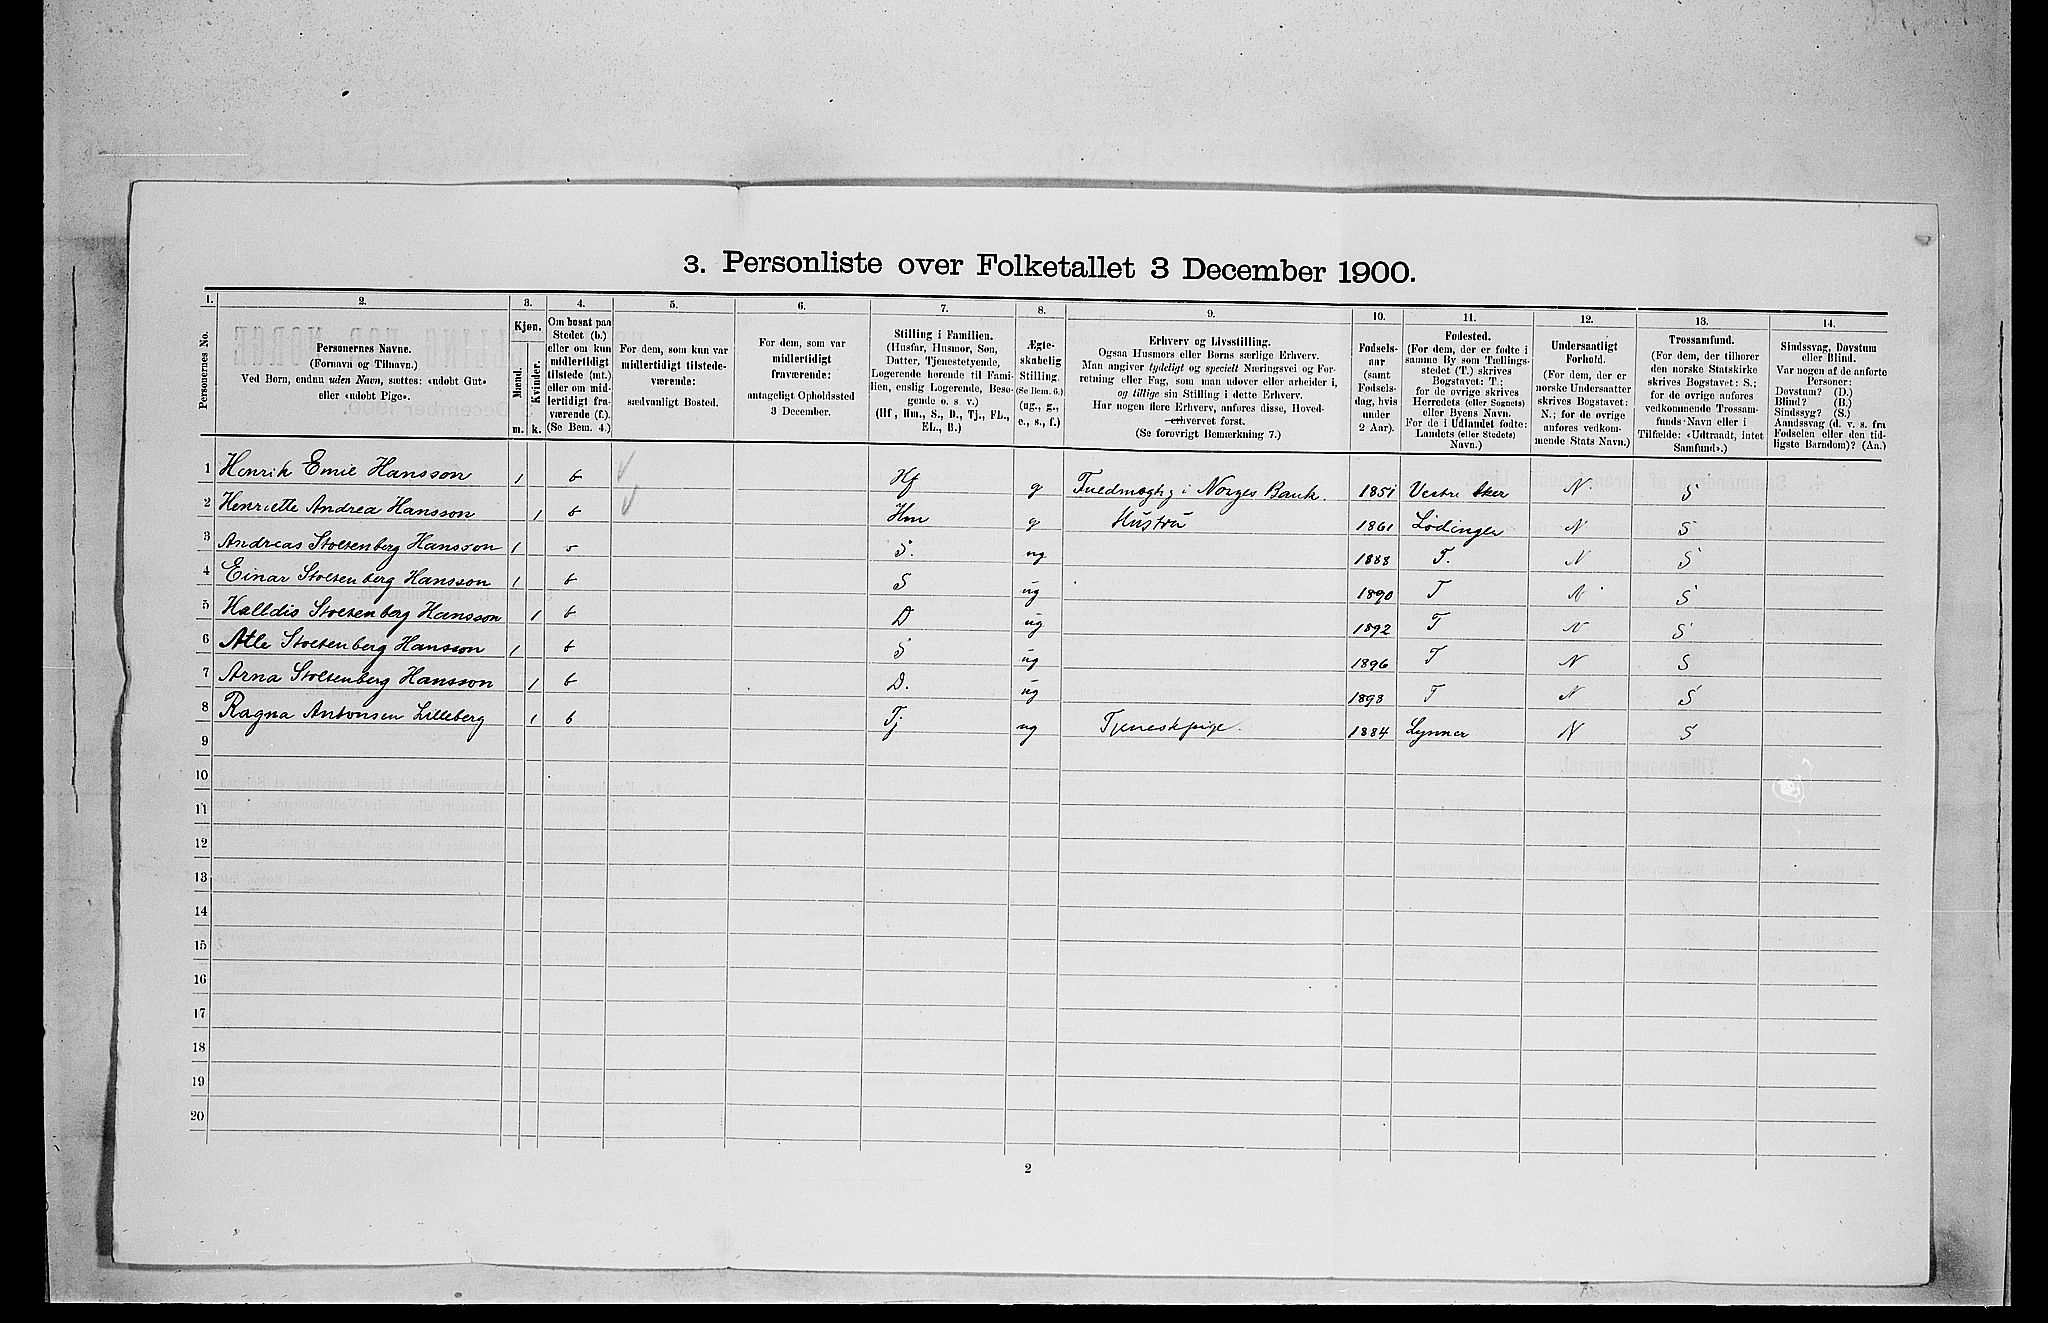 3. Personliste over Folketallet 3 December 1900.
1. 2. 3. 4. 5. 6. 7. 8. 9. 10. 11. 12. 13. 14.
Personernes No.
Personernes Navne.
(Fornavn og Tilnavn.)
Ved Børn, endnu uden Navn, sættes: «udøbt Gut»
eller «udøbt Pige».
Kjøn.
Mænd.
Kvinder.
m. k.
Om bosat paa
Stedet (b.)
eller om kun
midlertidigt
tilstede (mt.)
eller om mid-
lertidigt fra-
værende (f.).
(Se Bem. 4.)
For dem, som kun var
midlertidigt tilstede-
værende:
sædvanligt Bosted.
For dem, som var
midlertidigt
fraværende:
antageligt Opholdssted
3 December.
Stilling i Familien.
(Husfar, Husmor, Søn,
Datter, Tjenestetyende,
Logerende hørende til Fami-
lien, enslig Logerende, Besø-
gende o. s. v.)
(Hf, Hm., S., D., Tj., FL.,
EL., B.)
Ægte-
skabelig
Stilling.
(Se Bem. 6.)
(ug., g.,
e., s., f.)
Erhverv og Livsstilling.
Ogsaa Husmors eller Børns særlige Erhverv.
Man angiver tydeligt og specielt Næringsvei og For-
retning eller Fag, som man udøver eller arbeider i,
og tillige sin Stilling i dette Erhverv.
Har nogen flere Erhverv, anføres disse, Hoved-
erhvervet først.
(Se forøvrigt Bemærkning 7.)
Fødsels-
aar
(samt
Fødsels-
dag, hvis
under
2 Aar).
Fødested.
(For dem, der er fødte i
samme By som Tællings-
stedet (T.) skrives
Bogstavet: T.;
for de øvrige skrives
Herredets (eller Sognets)
eller Byens Navn.
For de i Udlandet fødte:
Landets (eller Stedets)
Navn.)
Undersaatligt
Forhold.
(For dem, der er
norske Undersaatter
skrives Bogstavet:
N.; for de øvrige
anføres vedkom-
mende Stats Navn.)
Trossamfund.
(For dem, der tilhører
den norske Statskirke
skrives Bogstavet: S.;
for de øvrige anføres
vedkommende Trossam-
funds Navn eller i
Tilfælde: «Udtraadt, intet
Samfund».)
Sindssvag, Døvstum
eller Blind.
Var nogen af de anførte
Personer:
Døvstum? (D.)
Blind? (B.)
Sindssyg? (S.)
Aandssvag (d. v. s. fra
Fødselen eller den tid-
ligste Barndom)? (Aa.)
1 Henrik Emil Hansson 1 b Hf g Fuldmægtig i Norges Bank. 1851 Vestre Aker N. S
2 Henriette Andrea Hansson 1 b Hm g Hustru 1861 Lødingen N S
3 Andreas Stoltenberg Hansson 1 S. ug 1888 T. N S
4 Einar Stoltenberg Hansson 1 b S ug 1890 T N S
5 Halldis Stoltenberg Hansson 1 b D ug 1892 T N S
6 Atle Stoltenberg Hansson 1 b S ug 1896 T N S
7 Arna Stoltenberg Hansson 1 b D. ug 1898 T N S
8 Ragna Antonsen Lilleberg 1 b Tj ug Tjenestpige. 1884 Lynner N S
9
10
11
12
13
14
15
16
17
18
19
20
2